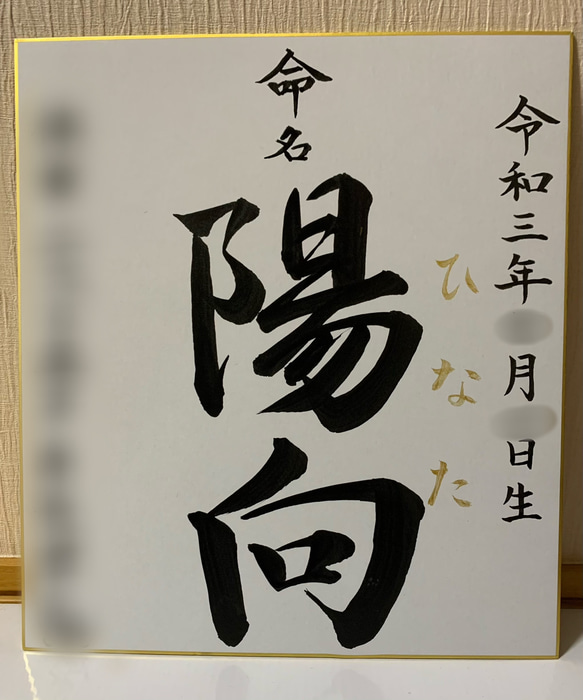 令和三年 月 日生
ひなた
命名
陽向